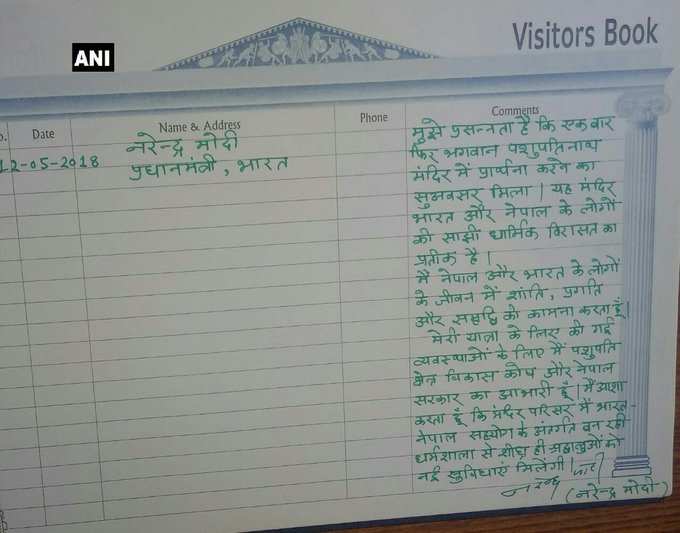 ANI
Visitors Book
Date
Name & Address
Phone
Comments
12-05-2018
नरेन्द्र मोदी
प्रधानमंत्री, भारत
मुझे प्रसन्नता है कि एक बार
फिर भगवान पशुपतिनाथ
मंदिर में प्रार्थना करने का
सुअवसर मिला। यह मंदिर
भारत और नेपाल के लोगों
की साझी धार्मिक विरासत का
प्रतीक है।
मैं नेपाल और भारत के लोगों
के जीवन में शांति, प्रगति
और समृद्धि की कामना करता हूँ।
मेरी यात्रा के लिए की गई
व्यवस्थाओं के लिए मैं पशुपति
क्षेत्र विकास कोष और नेपाल
सरकार का आभारी हूँ। मैं आशा
करता हूँ कि मंदिर परिसर में भारत-
नेपाल सहयोग के अंतर्गत बन रही
धर्मशाला से शीघ्र ही श्रद्धालुओं को
नई सुविधाएं मिलेंगी।
(नरेन्द्र मोदी)